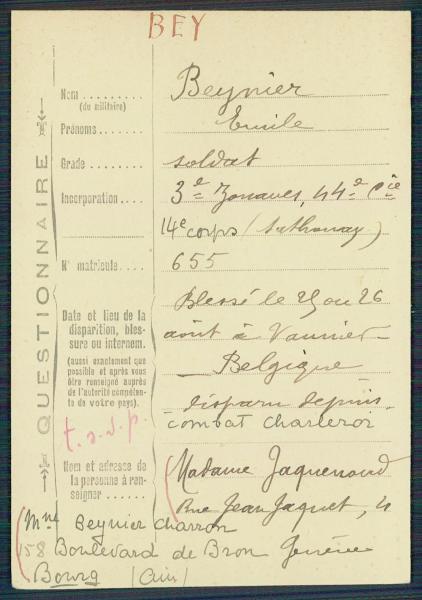 BEY
QUESTIONNAIRE
Nom .......... Beynier
(du militaire)
Prénoms ....... Emile
Grade ......... soldat
Incorporation .... 3e Zouaves, 44e Cie
14e corps (Sathonay)
N° matricule .... 655
Date et lieu de la disparition, blessure ou internem.
(aussi exactement que possible et après vous être renseigné auprès de l'autorité compétente de votre pays).
Blessé le 25 ou 26
août à
Belgique
disparu depuis
combat Charleroi
t. s. d. p.
Nom et adresse de la personne à renseigner ......
Madame Jaquenoud
Rue Jean Jaquet, 4
Genève
Mme Beynier Charron
158 Boulevard de Bron
Bourg (Ain)